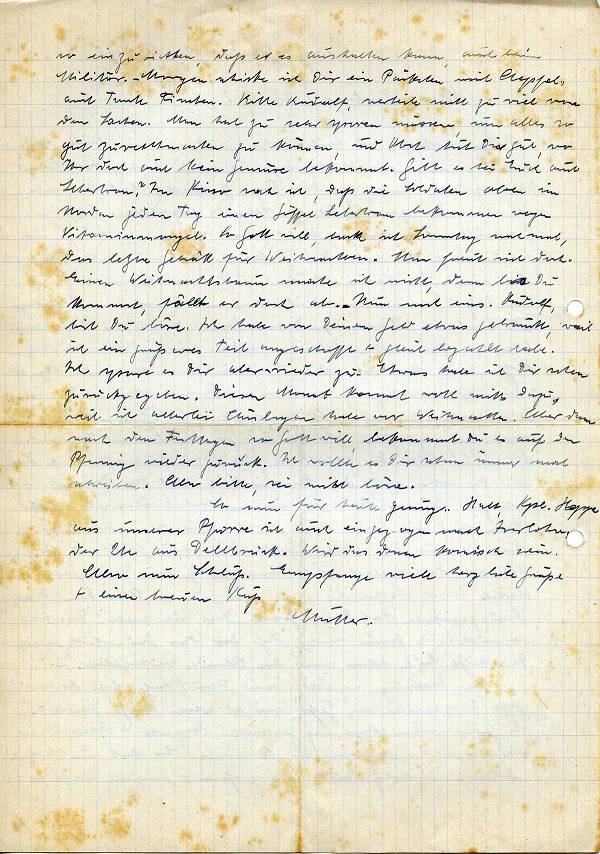 so einzurichten, daß er es aushalten kann, auch beim
Militär. – Morgen schicke ich Dir ein Päckchen mit Aepfel,
auch Tante Finchen. Bitte Rudolf, verteile nicht zu viel von
den Sachen. Man hat zu sehr sparen müssen, um alles so
gut zurechtmachen zu können, und Obst tut Dir gut, wo
Ihr doch auch kein Gemüse bekommt. Gibt es bei Euch auch
Lebertran? Im Kino sah ich, daß die Soldaten oben im
Norden jeden Tag einen Löffel Lebertran bekommen wegen
Vitaminmangel. So Gott will, backe ich Sonntag nochmal,
das letzte Gebäck für Weihnachten. Man freut sich doch.
Einen Weihnachtsbaum mache ich nicht, denn bis Du
kommst, fällt er doch ab. – Nun noch eins. Rudolf,
bist Du böse. Ich habe von Deinem Geld etwas gebraucht, weil
ich ein größeres Teil angeschafft + gleich bezahlt habe.
Ich spare es Dir aber wieder zu. Etwas habe ich Dir schon
zurückgegeben. Diesen Monat kommt noch nichts dazu,
weil ich allerlei Auslagen habe vor Weihnachten. Aber dann
nach den Festtagen so Gott will, bekommst du es auf den
Pfennig wieder zurück. Ich wollte es Dir schon immer mal
schreiben. Aber bitte, sei nicht böse.
So nun für heute genug. Halt, Kpl. Hoppe
aus unserer Pfarre ist auch eingezogen nach Iserlohn,
der aus Dellbrück. Wird das dann komisch sein.
Aber nun Schluß. Empfange viele herzliche Grüße
+ einen Kuß
Mutter.